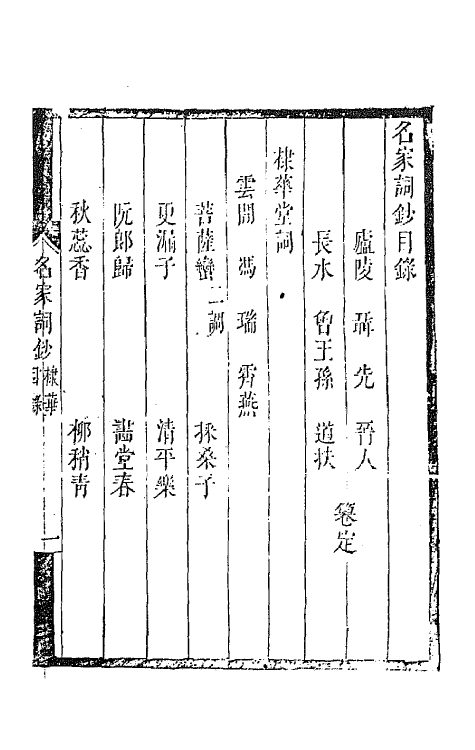 名家詞鈔目錄
廬陵 聶先 晉人
長水 曾王孫 道扶
篹定
棣華堂詞
雲間 馮瑞 霄燕
菩薩蠻二調 採桑子
更漏子 清平樂
阮郎歸 畫堂春
秋蕊香 柳稍青
名家詞鈔 棣華目錄 一